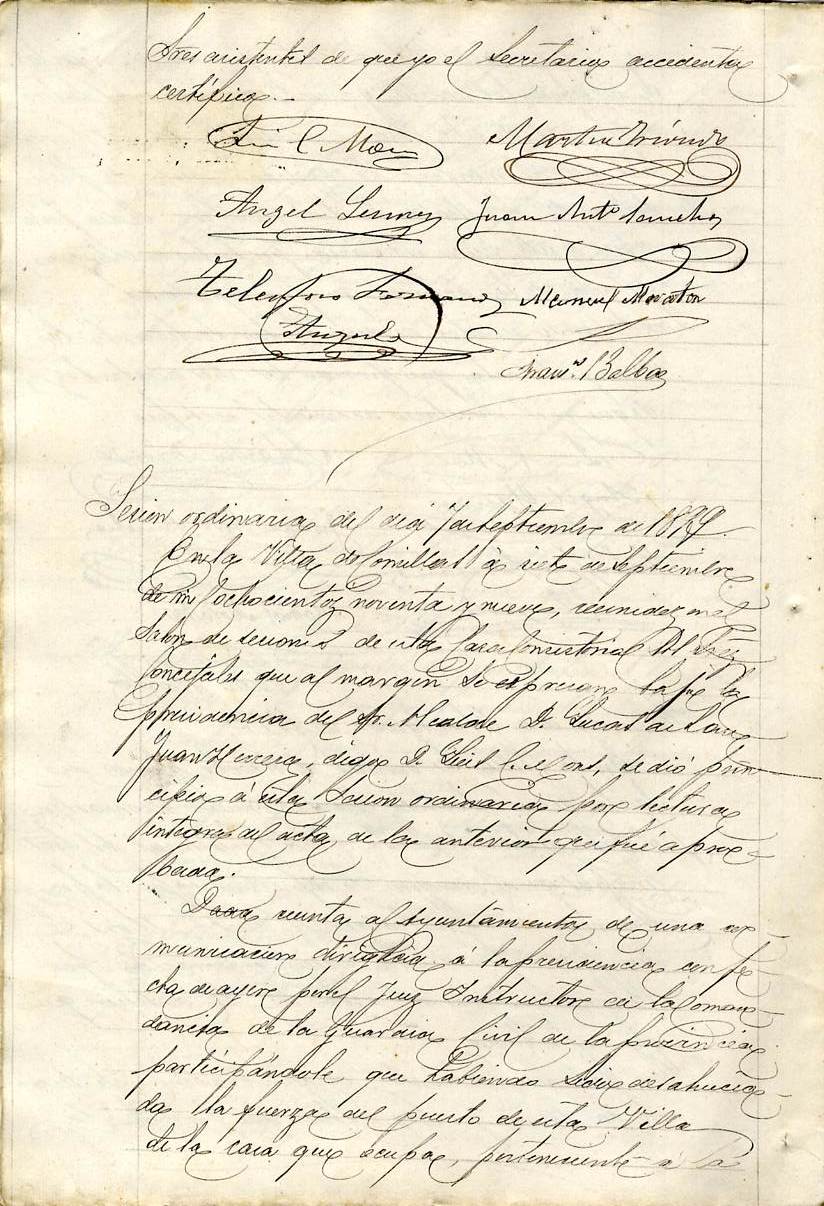 Sres asistentes de que yo el Secretario accidental
certifico.-
Martin Triondo
Angel
Juan Antº Sanchez
Telesforo Fernandez Manuel
Franᶜᵒ Balbas
Sesion ordinaria del dia 7 de Septiembre de 1899.
En la Villa de Comillas á siete de Septiembre
de mil ochocientos noventa y nueve, reunidos en el
Salon de sesiones de esta Casa Consistorial los Sres
Concejales que al margen se espresan bajo la
presidencia del Sr. Alcalde D. Lucas de San
Juan Herrera, digo D. Luis C. Mons, se dió prin-
cipio á esta sesion ordinaria por lectura
integra del acta de la anterior que fué apro-
bada.
Dada cuenta al Ayuntamiento de una co-
municacion dirigida á la presidencia con fe-
cha de ayer por el Juez Instructor de la Coman-
dancia de la Guardia Civil de la provincia
participándole que habiendo sido desahucia-
da la fuerza del puesto de esta Villa
de la casa que ocupa, perteneciente á la